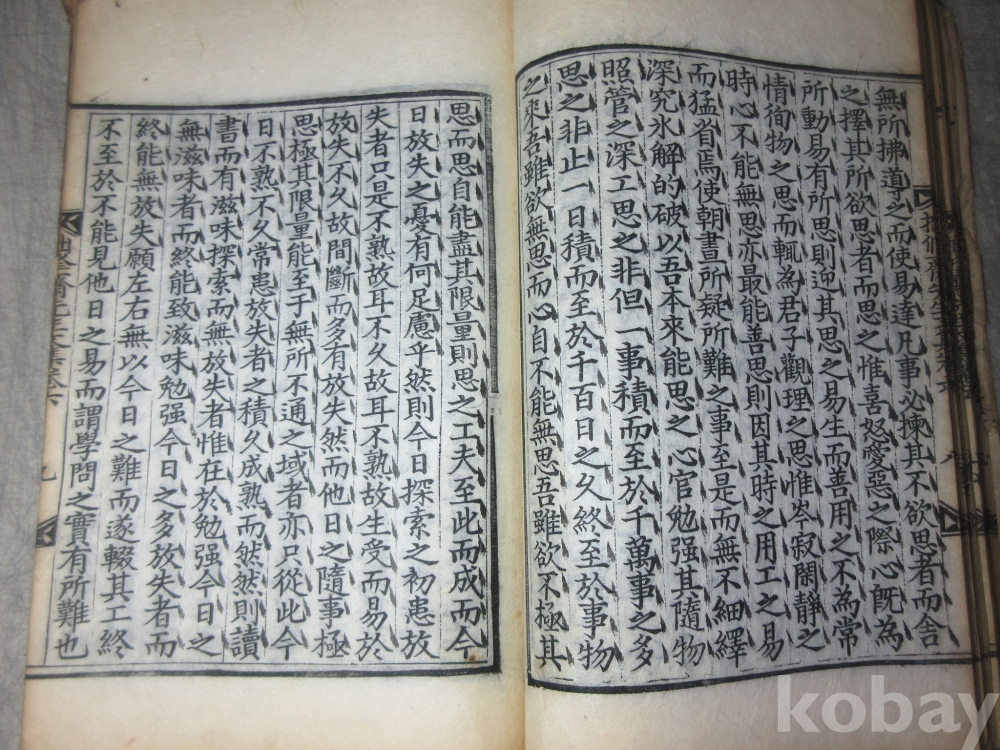 無所拂導之而使易達凡事必揀其不欲思者而舍
之擇其所欲思者而思之惟喜怒愛惡之際心旣為
所動易有所思則迎其思之易生而善用之不為常
情徇物之思而輒為君子觀理之思惟岑寂閑靜之
時心不能無思亦最能善思則因其時之用工之易
而猛省焉使朝晝所疑所難之事至是而無不細繹
深究氷解的破以吾本來能思之心官勉强其隨物
照管之深工思之非但一事積而至於千萬事之多
思之非止一日積而至於千百日之久終至於事物
之來吾雖欲無思而心自不能無思吾雖欲不極其
思而思自能盡其限量則思之工夫至此而成而今
日放失之憂有何足慮乎然則今日探索之初患放
失者只是不熟故耳不久故耳不熟故生受而易於
放失不久故間斷而多有放失然而他日之隨事極
思極其限量能至于無所不通之域者亦只從此今
日不熟不久常患放失者之積久成熟而然然則讀
書而有滋味探索而無放失者惟在於勉强今日之
無滋味者而終能致滋味勉强今日之多放失者而
終能無放失願左右無以今日之難而遂輟其工終
不至於不能見他日之易而謂學問之實有所難也
九
kobay